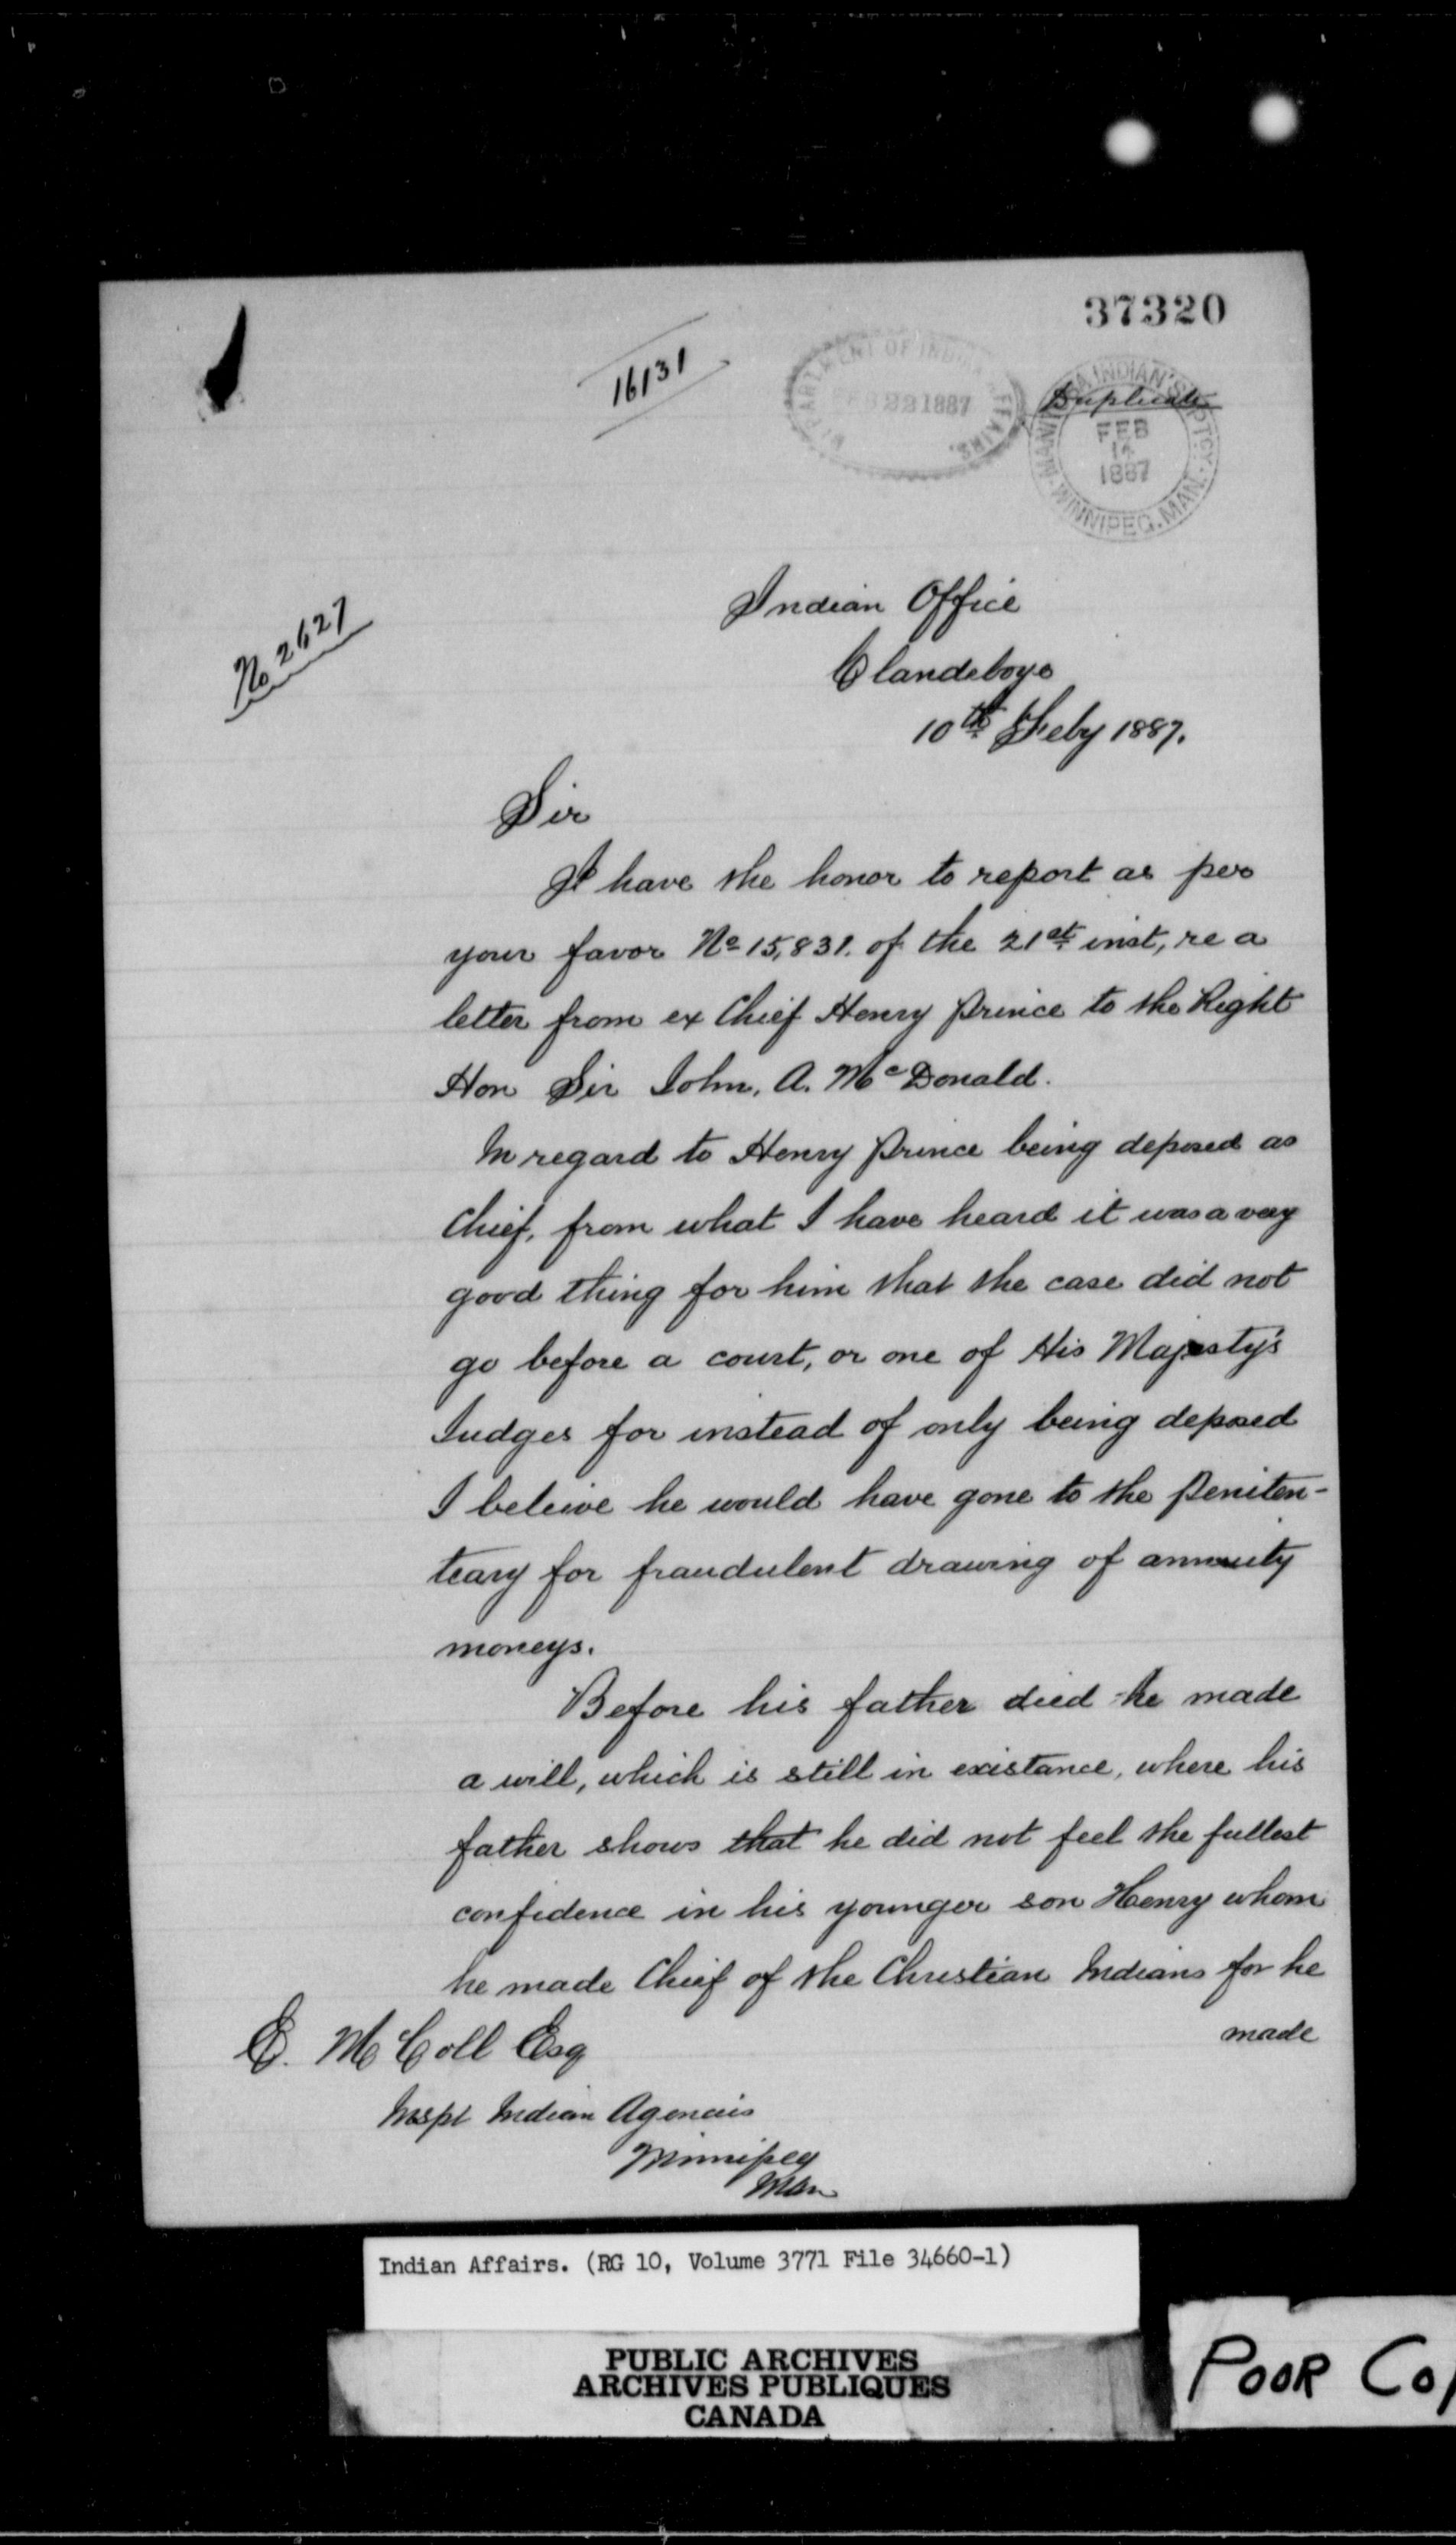 37320
16131
DEPARTMENT OF INDIAN AFFAIRS.
FEB 22 1887
Duplicate
MANITOBA INDIAN SUPTCY. WINNIPEG. MAN.
FEB
14
1887
No 2627
Indian Office
Clandeboye
10th Feby 1887.
Sir
I have the honor to report as per
your favor No 15,831. of the 21st inst, re a
letter from ex Chief Henry Prince to the Right
Hon Sir John. A. McDonald.
In regard to Henry Prince being deposed as
Chief, from what I have heard it was a very
good thing for him that the case did not
go before a court, or one of His Majesty's
Judges for instead of only being deposed
I beleive he would have gone to the peniten-
teary for fraudulent drawing of annuity
moneys.
Before his father died he made
a will, which is still in existance, where his
father shows that he did not feel the fullest
confidence in his younger son Henry whom
he made Chief of the Christian Indians for he
made
E. McColl Esq
Inspt Indian Agencies
Winnipeg
Man
Indian Affairs. (RG 10, Volume 3771 File 34660-1)
PUBLIC ARCHIVES
ARCHIVES PUBLIQUES
CANADA
POOR CO